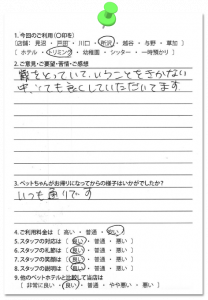 1.今回のご利用(〇印を)
[店舗: 見沼 ・ 戸田 ・ 川口 ・ 所沢 ・ 越谷 ・ 与野 ・ 草加 ]
[ ホテル ・ トリミング ・ 幼稚園 ・ シッター ・ 一時預かり ]
2.ご意見・ご要望・苦情・ご感想
歳をとっていて、いうことをきかない
中、とても良くしていただいてます
3.ペットちゃんがお帰りになってからの様子はいかがでしたか?
いつも通りです
4.ご利用料金は [ 高い ・ 普通 ・ 良い ]
5.スタッフの対応は [ 良い ・ 普通 ・ 悪い ]
6.スタッフの礼節は [ 良い ・ 普通 ・ 悪い ]
7.スタッフの笑顔は [ 良い ・ 普通 ・ 悪い ]
8.スタッフの説明は [ 良い ・ 普通 ・ 悪い ]
9.他のペットホテルと比較して当店は
[ 非常に良い ・ 良い ・ 普通 ・ やや悪い ・ 悪い ]